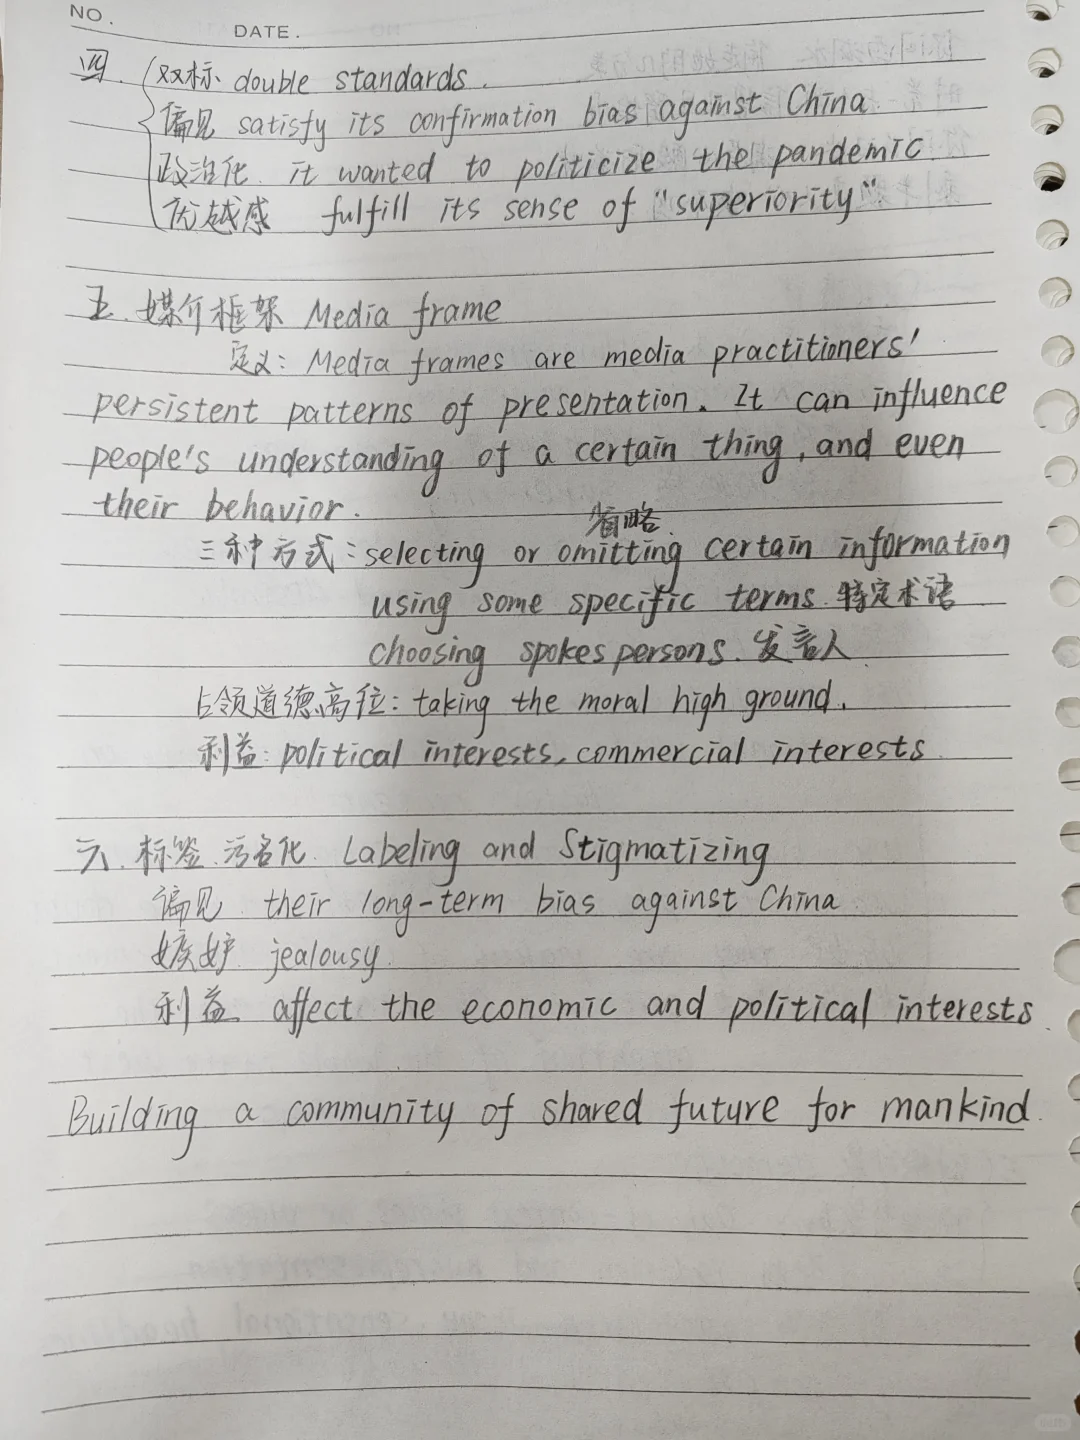 NO.
DATE.
四. 双标 double standards.
偏见 satisfy its confirmation bias against China
政治化. it wanted to politicize the pandemic.
优越感 fulfill its sense of "superiority"
五. 媒介框架 Media frame
定义: Media frames are media practitioners'
persistent patterns of presentation. It can influence
people's understanding of a certain thing, and even
their behavior.
省略.
三种方式: selecting or omitting certain information
using some specific terms. 特定术语
choosing spokespersons. 发言人.
占领道德高位: taking the moral high ground.
利益: political interests, commercial interests.
六. 标签.污名化. Labeling and Stigmatizing
偏见. their long-term bias against China
嫉妒. jealousy.
利益. affect the economic and political interests.
Building a community of shared future for mankind.